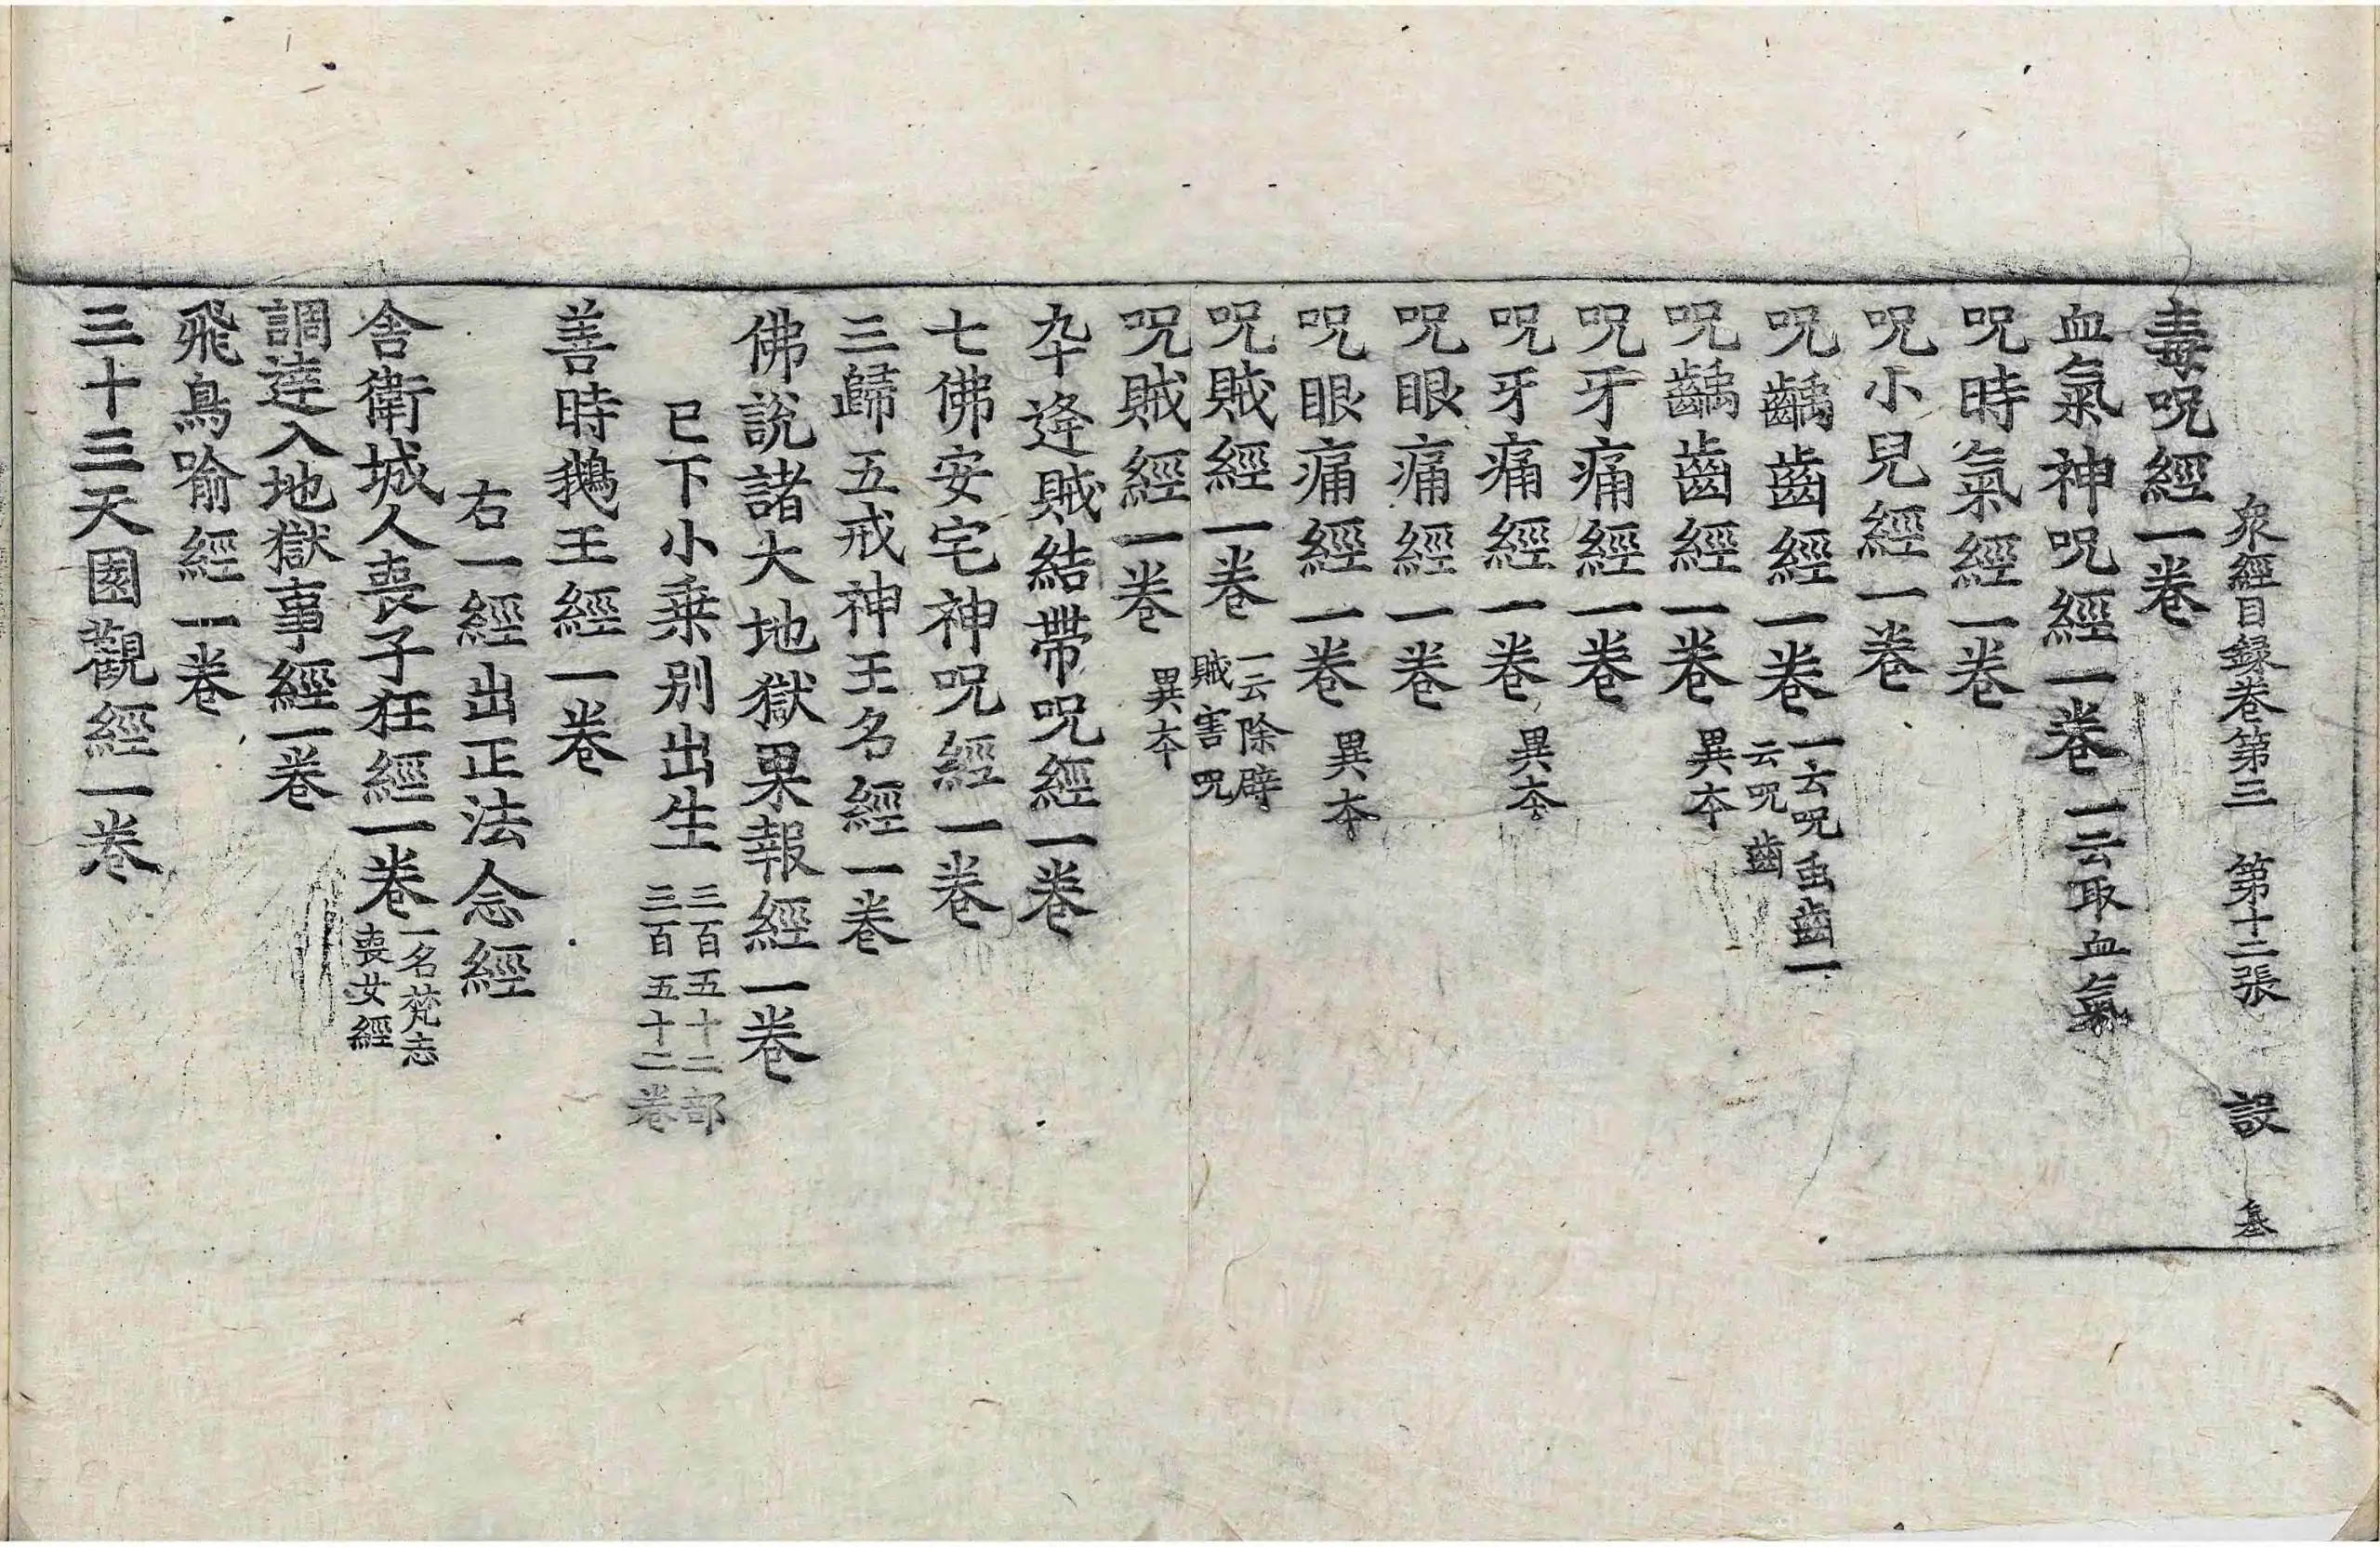 衆經目録卷第三 第十二張 設
毒呪經一卷
血氣神呪經一卷 一云取血氣
呪時氣經一卷
呪小兒經一卷
呪齲齒經一卷 一云呪虫齒一云呪齒
呪齲齒經一卷 異夲
呪牙痛經一卷
呪牙痛經一卷 異夲
呪眼痛經一卷
呪眼痛經一卷 異夲
呪賊經一卷 一云除辟賊害呪
呪賊經一卷 異夲
卒逢賊結帶呪經一卷
七佛安宅神呪經一卷
三歸五戒神王名經一卷
佛說諸大地獄果報經一卷
已下小乗别出生 三百五十二部三百五十二卷
善時鵝王經一卷
右一經出正法念經
舍衛城人喪子狂經一卷 一名梵志喪女經
調達入地獄事經一卷
飛鳥喻經一卷
三十三天園觀經一卷